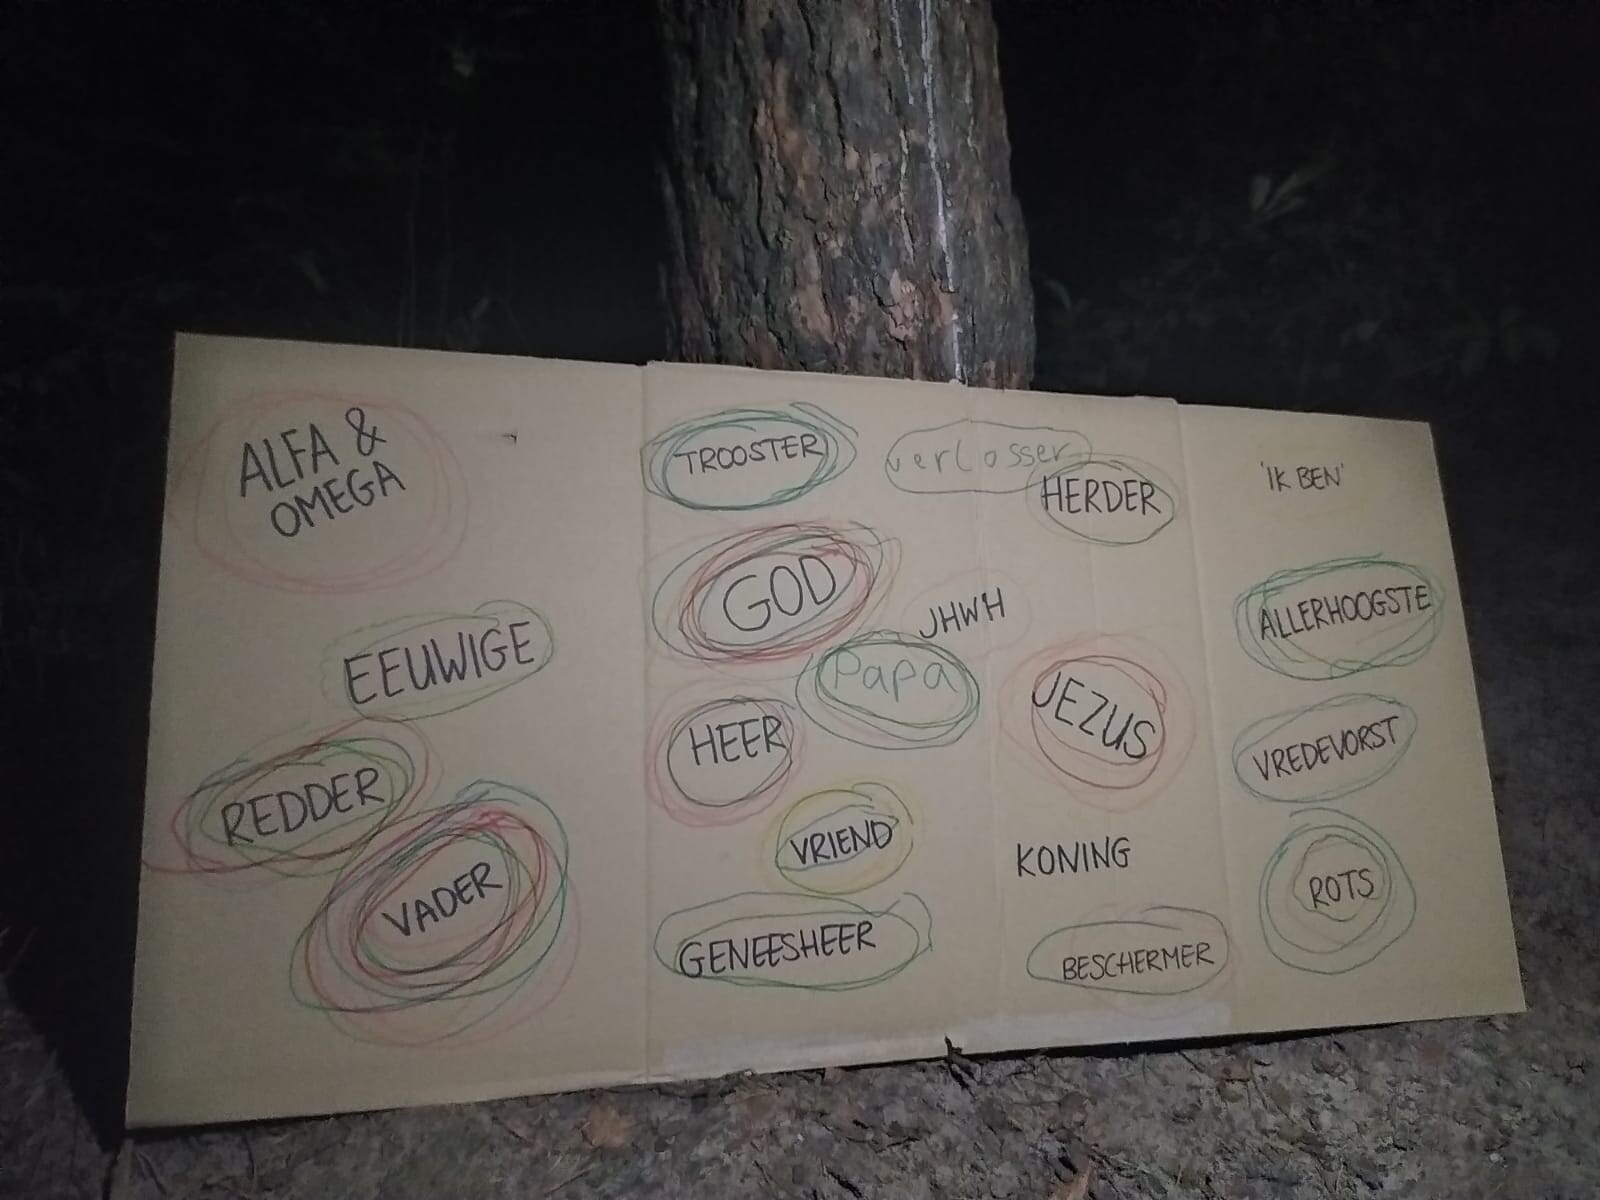 ALFA &
OMEGA
EEUWIGE
REDDER
VADER
TROOSTER
verlosser
HERDER
GOD
JHWH
Papa
HEER
JEZUS
VRIEND
KONING
GENEESHEER
BESCHERMER
'IK BEN'
ALLERHOOGSTE
VREDEVORST
ROTS